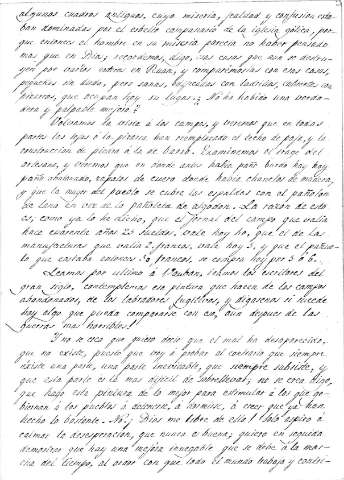 algunos cuadros antiguos, cuya miseria, fealdad y confusion esta-
ban dominadas por el esbelto campanario de la iglesia gótica, por-
que entonces el hombre en su miseria parecia no haber pensado
mas que en Dios; recordemos, digo, las casas que aun se destru-
yen por varios sitios en Ruan, y comparémoslas con esas casas,
pequeñas sin duda, pero sanas, de ladrillos, cubiertas con
pizarras, que ocupan hoy su lugar: ¿No ha habido una verda-
dera y palpable mejora?
Volvamos la vista á los campos, y veremos que en todas
partes las tejas ó la pizarra han reemplazado el techo de paja, y la
construccion de piedra á la de barro. Examinemos el trage del
artesano, y veremos que en donde habia paño burdo hay hoy
paño afinado, zapatos de cuero donde habia chanclos de madera,
y que la muger del pueblo se cubre las espaldas con el pañolon
de lana en vez de la pañoleta de algodon. La razon de esto
es, como ya lo he dicho, que el jornal del campo que valia
hace cuarenta años 23 sueldos, vale hoy 30, que el de las
manufacturas que valia 2 francos, vale hoy 3, y que el pañue-
lo que costaba entonces 30 francos, se compra hoy por 5 ó 6.
Leamos por último á Vauban, leamos los escritores del
gran siglo, contemplemos esa pintura que hacen de los campos
abandonados, de los labradores fugitivos, y dígasenos si sucede
hoy algo que pueda compararse con eso, aun despues de las
guerras mas horribles!
Y no se crea que quiero decir que el mal ha desaparecido,
que no existe, puesto que voy á probar al contrario que siempre
existe una parte, una parte inevitable, que siempre subsiste, y
que esta parte es la mas dificil de sobrellevar; no se crea digo,
que hago esta pintura de lo mejor para estimular á los que go-
biernan á los pueblos á detenerse, á dormirse, á creer que ya han
hecho lo bastante. ¡No! ¡Dios me libre de ello! Solo aspiro á
calmar la desesperacion, que nunca es buena; quiero en seguida
demostrar que hay una mejora innegable que se debe á la mar-
cha del tiempo, al orden con que todo el mundo trabaja y contri-